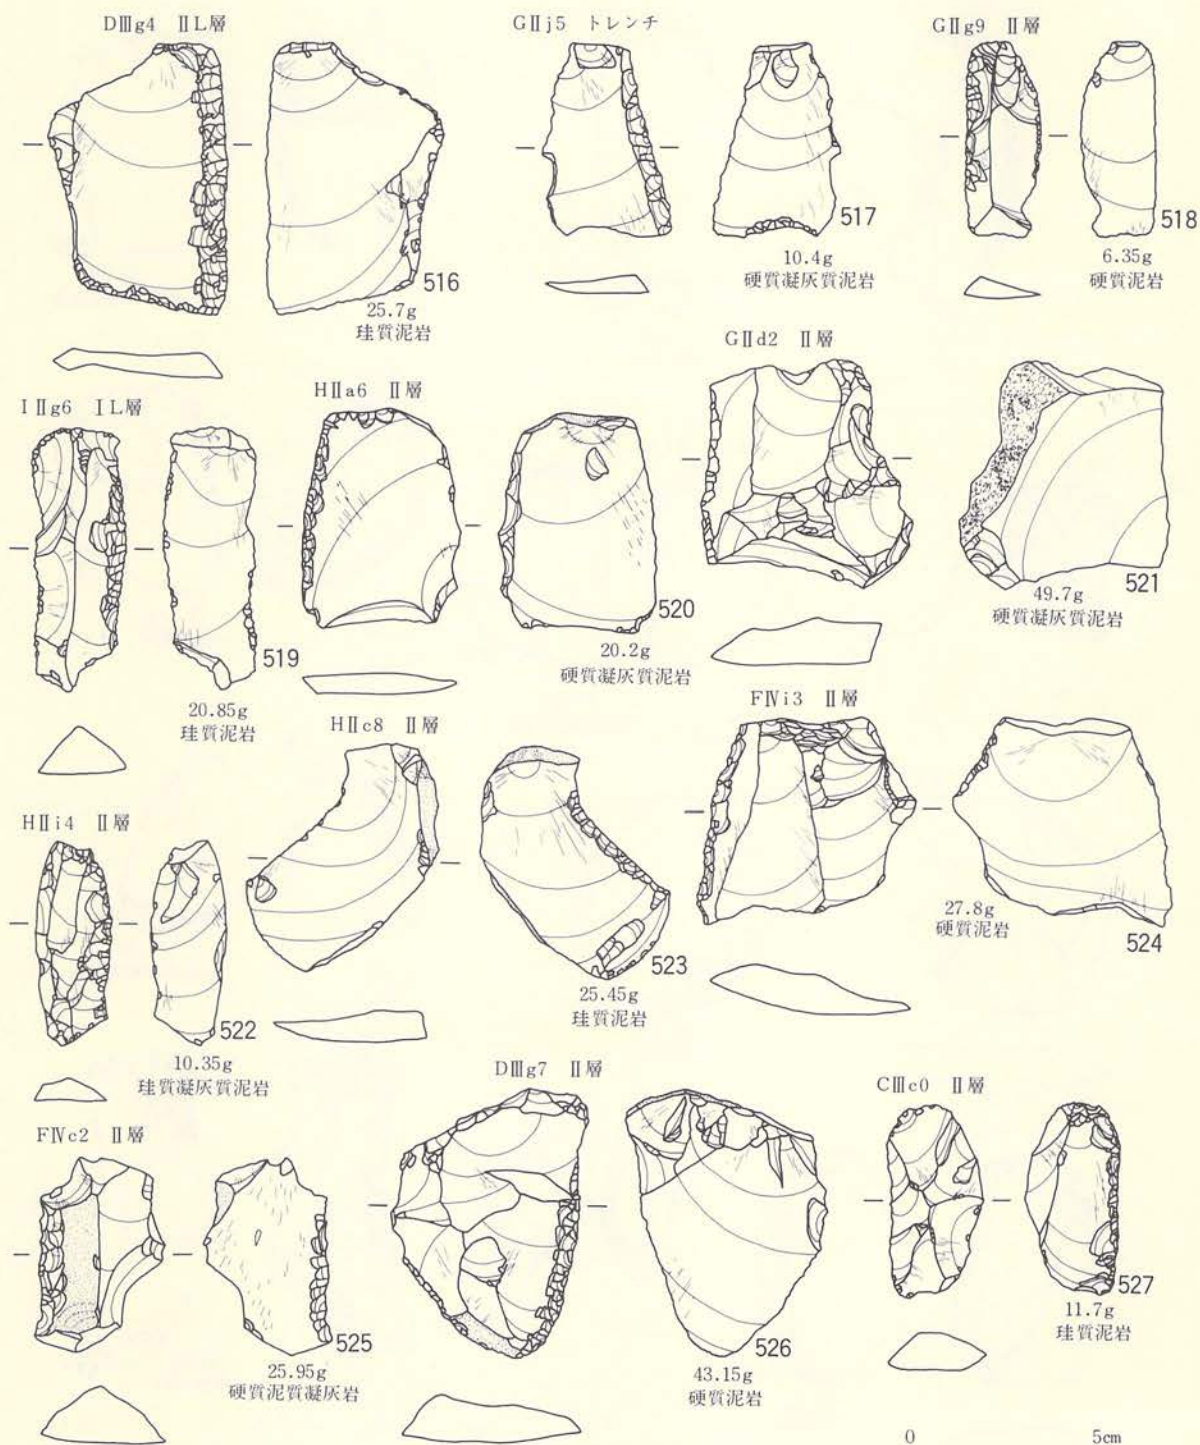 DⅢg4 ⅡL層
516
25.7g
珪質泥岩
GⅡj5 トレンチ
517
10.4g
硬質凝灰質泥岩
GⅡg9 Ⅱ層
518
6.35g
硬質凝灰質泥岩
IⅡg6 ⅠL層
519
20.85g
珪質泥岩
HⅡa6 Ⅱ層
520
20.2g
硬質凝灰質泥岩
GⅡd2 Ⅱ層
521
49.7g
硬質凝灰質泥岩
HⅡi4 Ⅱ層
522
10.35g
珪質凝灰質泥岩
HⅡc8 Ⅱ層
523
25.45g
珪質泥岩
FⅣi3 Ⅱ層
524
27.8g
硬質泥岩
FⅣc2 Ⅱ層
525
25.95g
硬質泥質凝灰岩
DⅢg7 Ⅱ層
526
43.15g
硬質泥岩
CⅢc0 Ⅱ層
527
11.7g
珪質泥岩
0 5cm